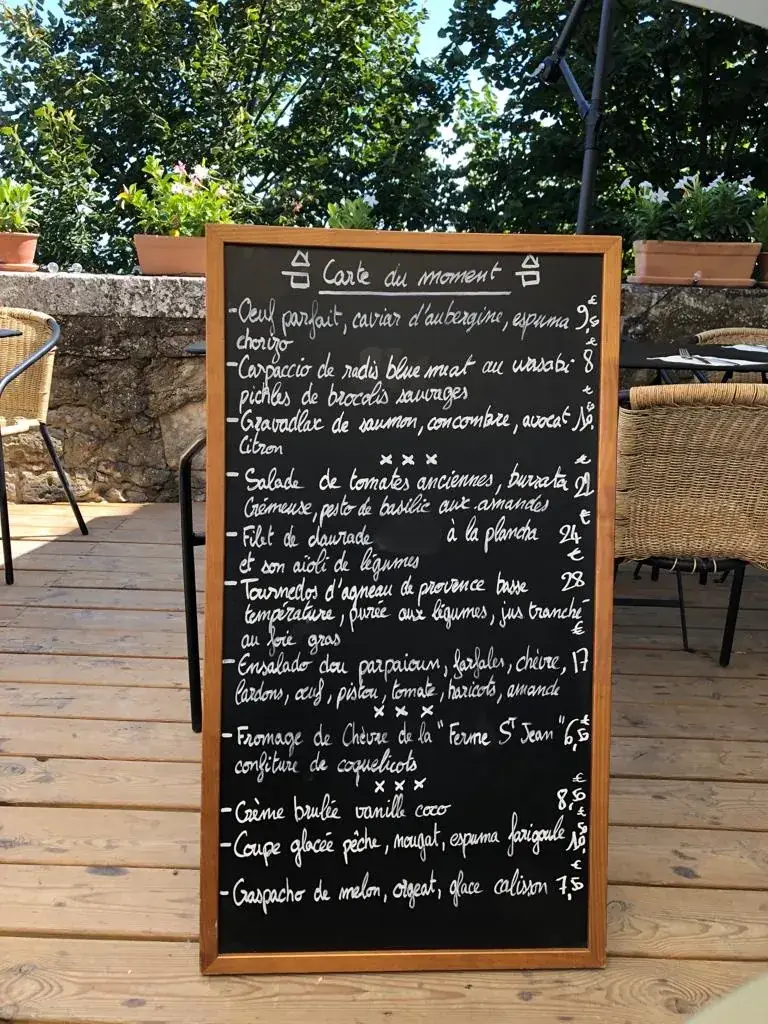 Carte du moment
- Oeuf parfait, caviar d'aubergine, espuma 9,50 €
chorizo
- Carpaccio de radis blue meat au wasabi 8 €
pickles de brocolis sauvages
- Gravadlax de saumon, concombre, avocat
Citron
x x x
- Salade de tomates anciennes, burrata €
Crémeuse, pesto de basilic aux amandes
- Filet de daurade à la plancha 24 €
et son aïoli de légumes
- Tournedos d'agneau de provence basse 28 €
température, purée aux légumes, jus tranché
au foie gras
- Ensalado dou parpaioun, farfales, chèvre, 17 €
lardons, oeuf, pistou, tomate, haricots, amande
x x x
- Fromage de Chèvre de la "Ferme St Jean" 6,50 €
confiture de coquelicots
x x x
- Crème brulée vanille coco 8,50 €
- Coupe glacée pêche, nougat, espuma farigoule 10,50 €
- Gaspacho de melon, orgeat, glace calisson 7,50 €